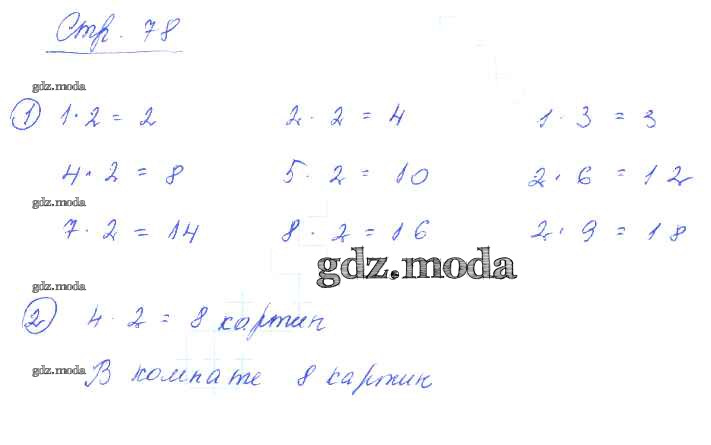 Стр. 78
gdz.moda
① 1·2 = 2 2·2 = 4 1·3 = 3
4·2 = 8 5·2 = 10 2·6 = 12
gdz.moda
7·2 = 14 8·2 = 16 2·9 = 18
gdz.moda
gdz.moda
② 4·2 = 8 картин
gdz.moda В комнате 8 картин